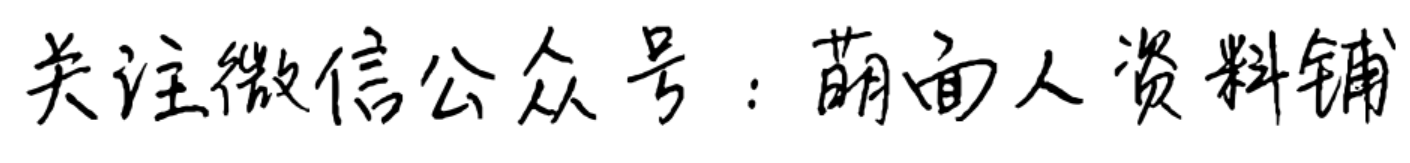 关注微信公众号：萌面人资料铺